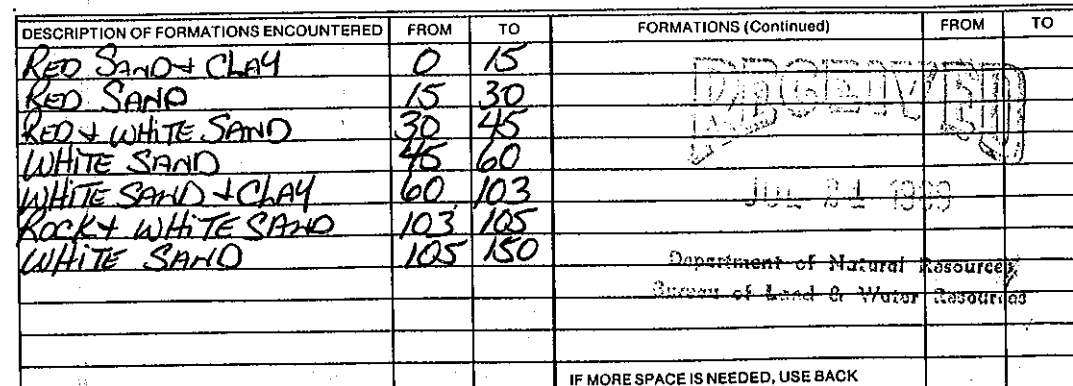 DESCRIPTION OF FORMATIONS ENCOUNTERED FROM TO FORMATIONS (Continued) FROM TO
RED SAND & CLAY 0 15
RED SAND 15 30
RED & WHITE SAND 30 45
WHITE SAND 45 60
WHITE SAND & CLAY 60 103
ROCK & WHITE SAND 103 105
WHITE SAND 105 150
RECEIVED
JUL 21
Department of Natural Resources
Bureau of Land & Water Resources
IF MORE SPACE IS NEEDED, USE BACK